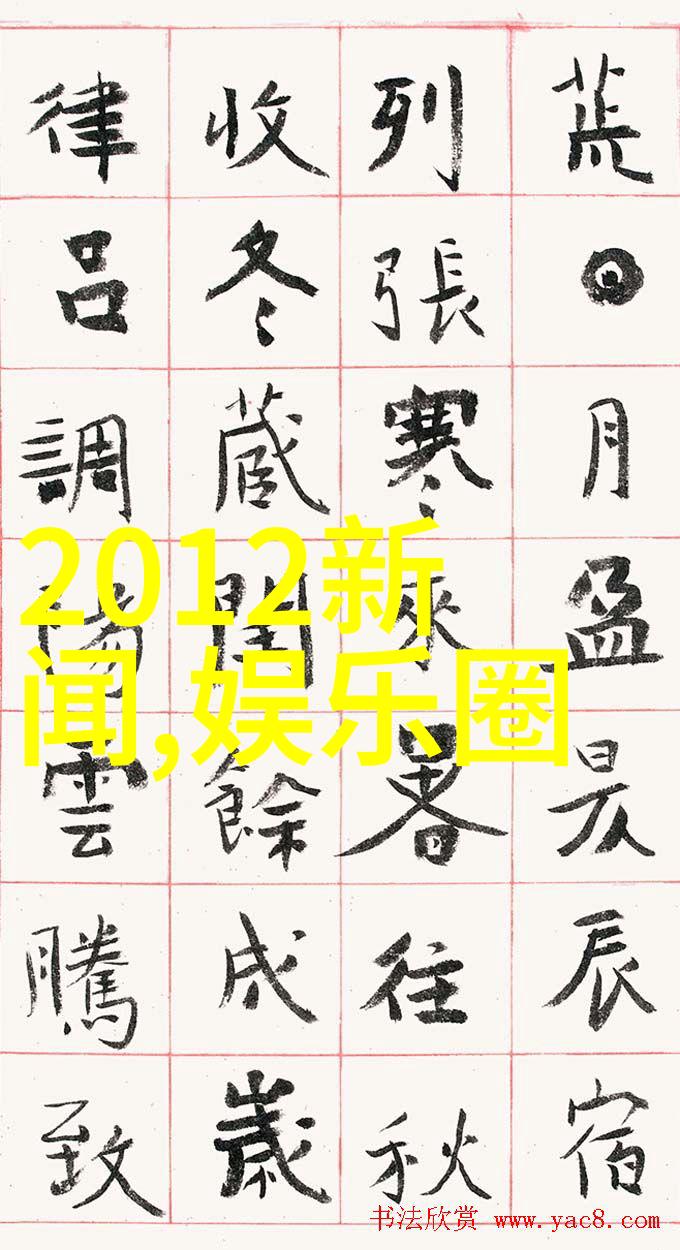 荒日月盈昃辰宿
列張寒來暑往秋
收冬藏閏餘成歲
律呂調陽雲騰致
2012新
闻,娱乐圈
书法欣赏 www.yac8.com